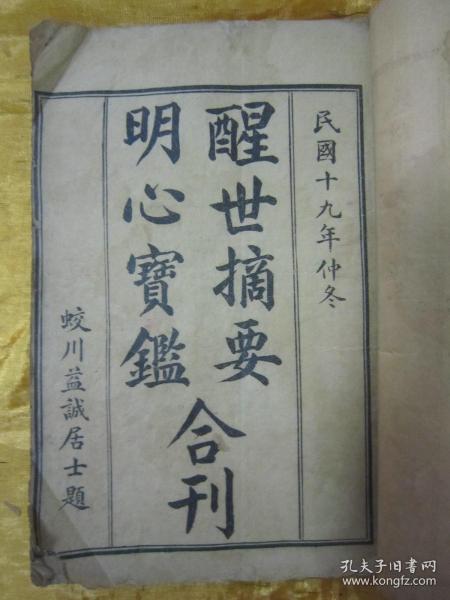 民國十九年仲冬
醒世摘要
明心寶鑑
合刊
蛟川益誠居士題
孔夫子旧书网
www.kongfz.com